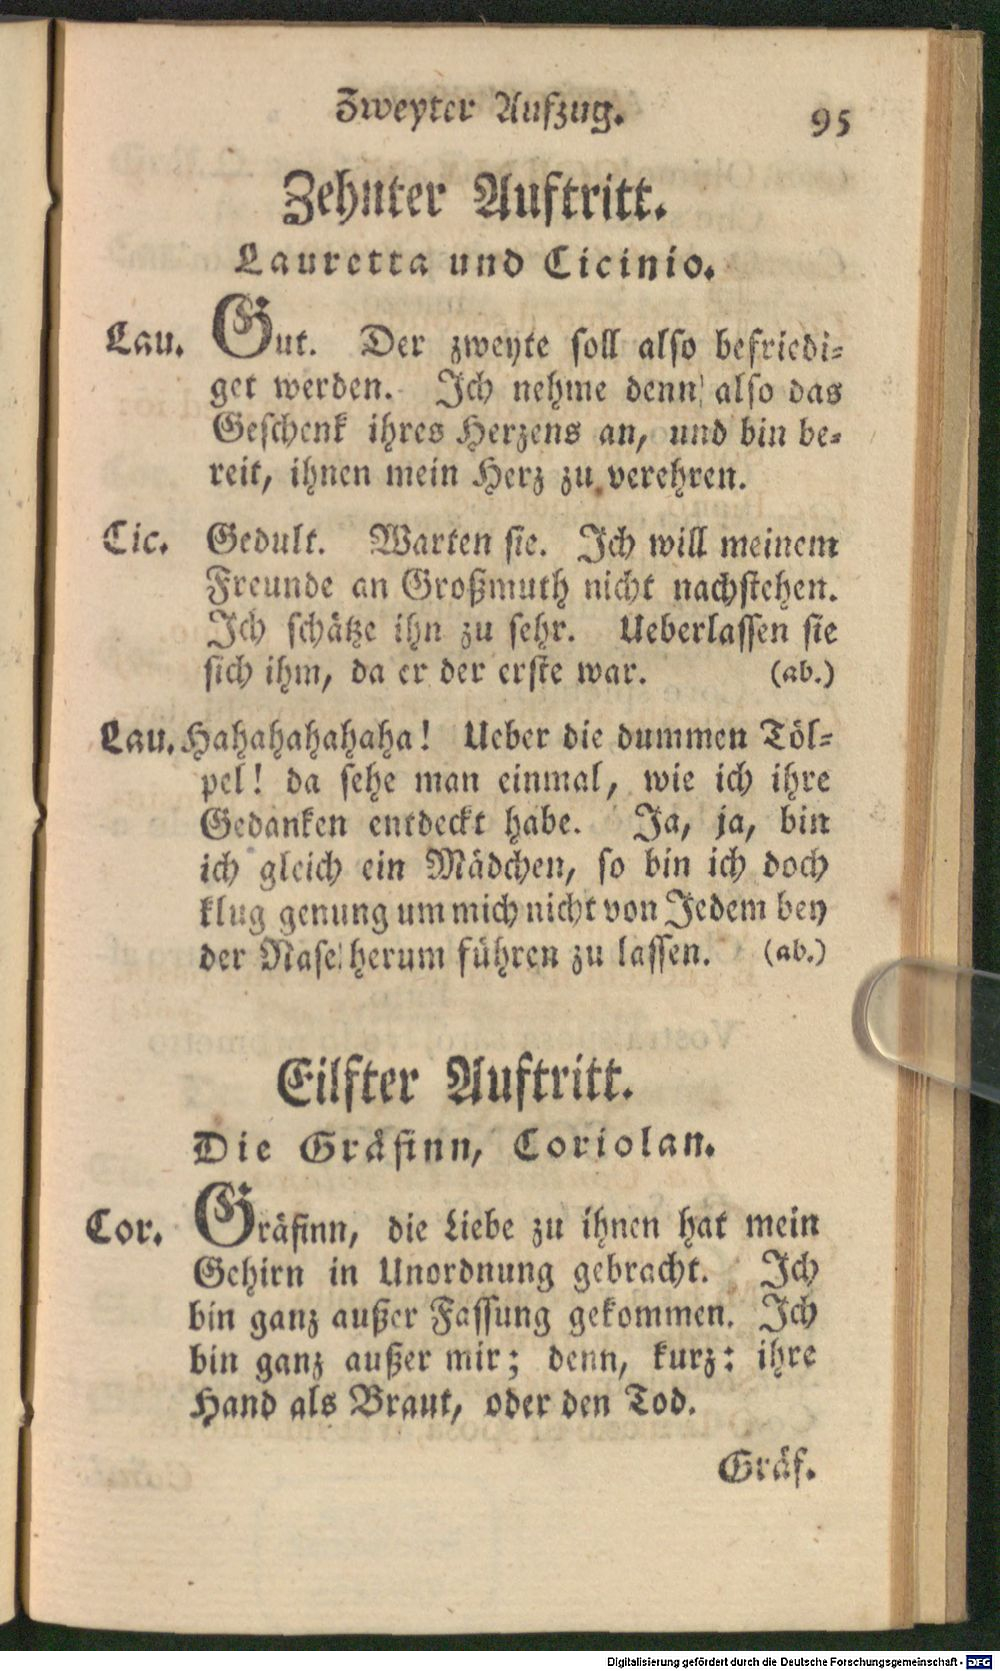 Zweyter Aufzug.
95
Zehnter Auftritt.
Lauretta und Cicinio.
Lau. Gut. Der zweyte soll also befriedi-
get werden. Ich nehme denn also das
Geschenk ihres Herzens an, und bin be-
reit, ihnen mein Herz zu verehren.
Cic. Gedult. Warten sie. Ich will meinem
Freunde an Großmuth nicht nachstehen.
Ich schätze ihn zu sehr. Ueberlassen sie
sich ihm, da er der erste war. (ab.)
Lau. Hahahahahaha! Ueber die dummen Töl-
pel! da sehe man einmal, wie ich ihre
Gedanken entdeckt habe. Ja, ja, bin
ich gleich ein Mädchen, so bin ich doch
klug genung um mich nicht von Jedem bey
der Nase herum führen zu lassen. (ab.)
Eilfter Auftritt.
Die Gräfinn, Coriolan.
Cor. Gräfinn, die Liebe zu ihnen hat mein
Gehirn in Unordnung gebracht. Ich
bin ganz außer Fassung gekommen. Ich
bin ganz außer mir; denn, kurz: ihre
Hand als Braut, oder den Tod.
Gräf.
Digitalisierung gefördert durch die Deutsche Forschungsgemeinschaft - DFG